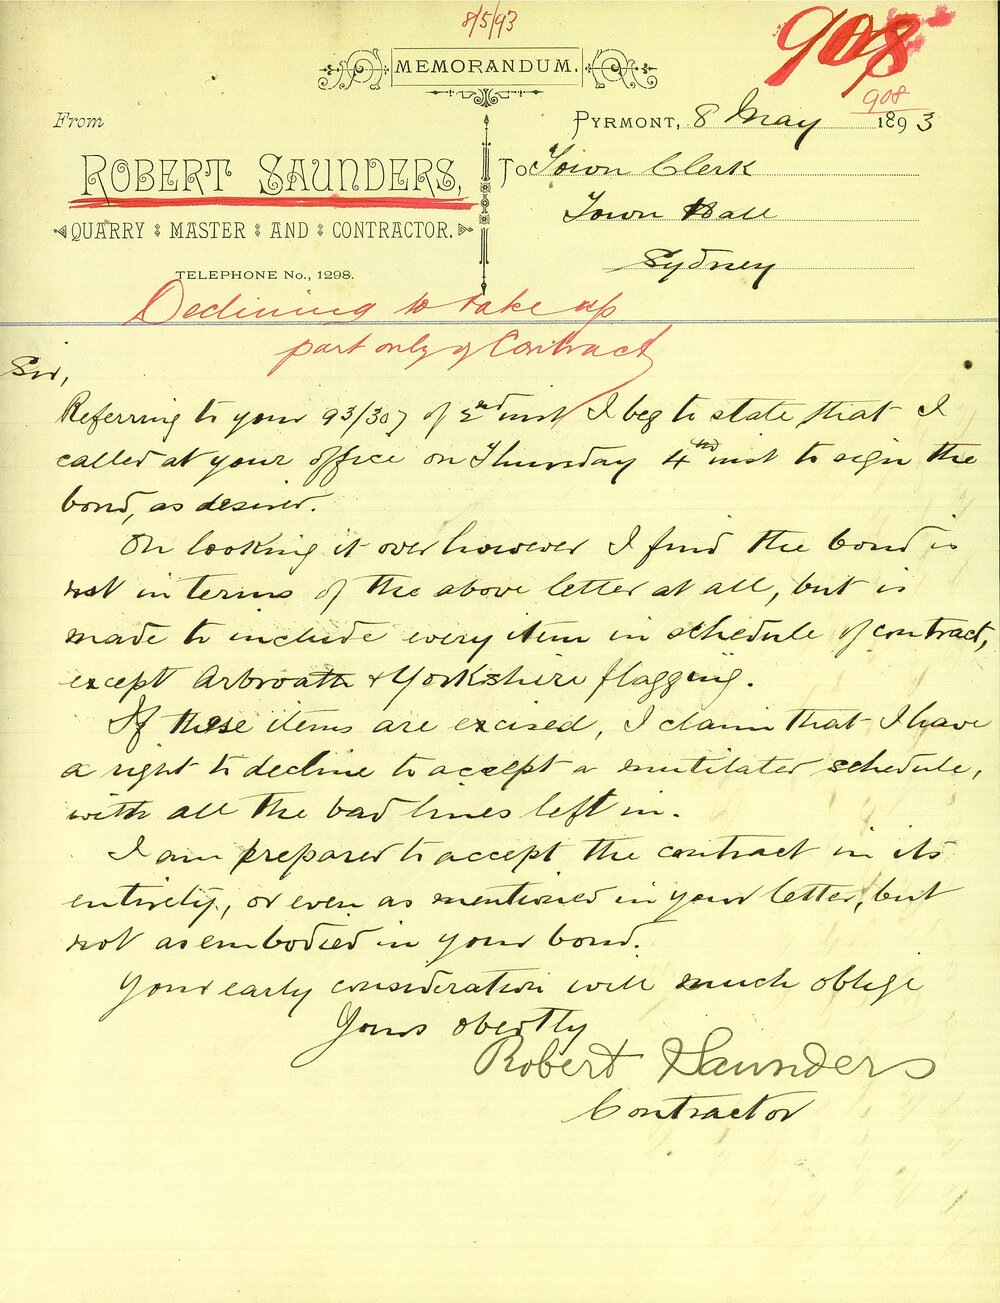 8/5/93
908
MEMORANDUM.
908
From
PYRMONT, 8 May 1893
ROBERT SAUNDERS,
To Town Clerk
Town Hall
QUARRY MASTER AND CONTRACTOR.
Sydney
TELEPHONE No., 1298.
Declining to take up
part only of Contract
Sir,
Referring to your 93/307 of 2nd inst I beg to state that I
called at your office on Thursday 4th inst to sign the
bond, as desired.
On looking it over however I find the bond is
not in terms of the above letter at all, but is
made to include every item in schedule of contract,
except Arbroath & Yorkshire flagging.
If these items are excised, I claim that I have
a right to decline to accept a mutilated schedule,
with all the bad lines left in.
I am prepared to accept the contract in its
entirety, or even as mentioned in your letter, but
not as embodied in your bond.
Your early consideration will much oblige
Yours obedtly
Robert Saunders
Contractor